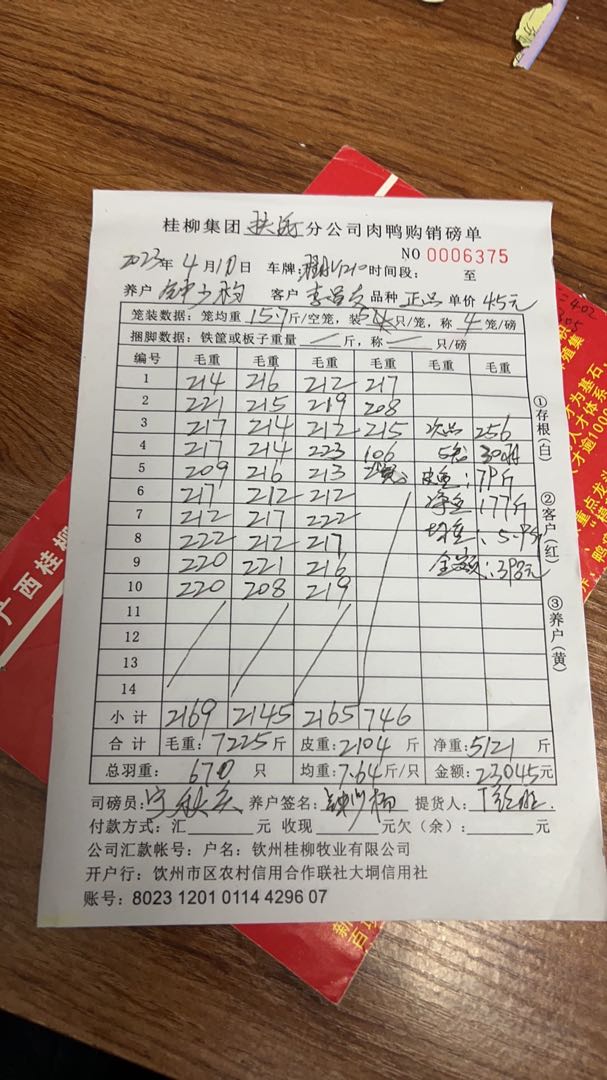 桂柳集团 扶沥 分公司肉鸭购销磅单
NO 0006375
2023年 4月 17日 车牌: 时间段: 至
养户 客户 品种 正品 单价 4.5元
笼装数据: 笼均重 15.7斤/空笼, 装 5 只/笼, 称 4 笼/磅
捆脚数据: 铁筐或板子重量 — 斤, 称 — 只/磅
编号 毛重 毛重 毛重 毛重 毛重 毛重
1 214 216 212 217
2 221 215 219 208
3 217 214 212 215 次品 256
4 217 214 223 106 5笼 30只
5 209 216 213 皮重: 79斤
6 217 212 212 净重: 177斤
7 212 217 222 均重: 5.9斤
8 222 212 217
9 220 221 216 金额: 398元
10 220 208 219
11
12
13
14
小计 2169 2145 2165 746
合计 毛重: 7225斤 皮重: 2104 斤 净重: 5121 斤
总羽重: 670 只 均重: 7.64斤/只 金额: 23045元
司磅员: 养户签名: 提货人:
付款方式: 汇 元 收现 元欠(余): 元
公司汇款帐号: 户名: 钦州桂柳牧业有限公司
开户行: 钦州市区农村信用合作联社大垌信用社
账号: 8023 1201 0114 4296 07
①存根(白)
②客户(红)
③养户(黄)
广西桂柳